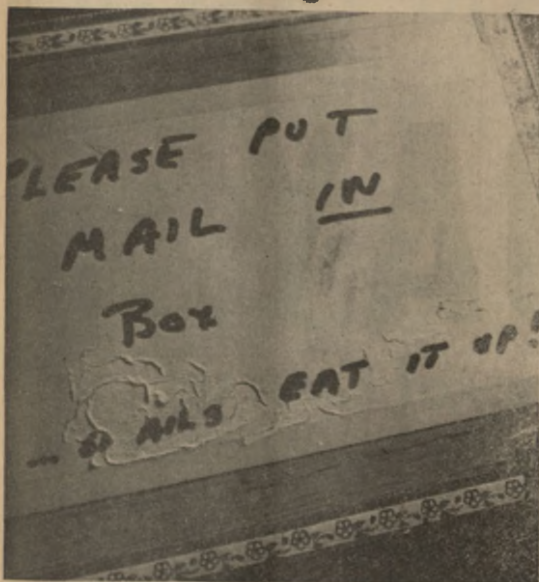 PLEASE PUT
MAIL IN
BOX
... SNAILS EAT IT UP!